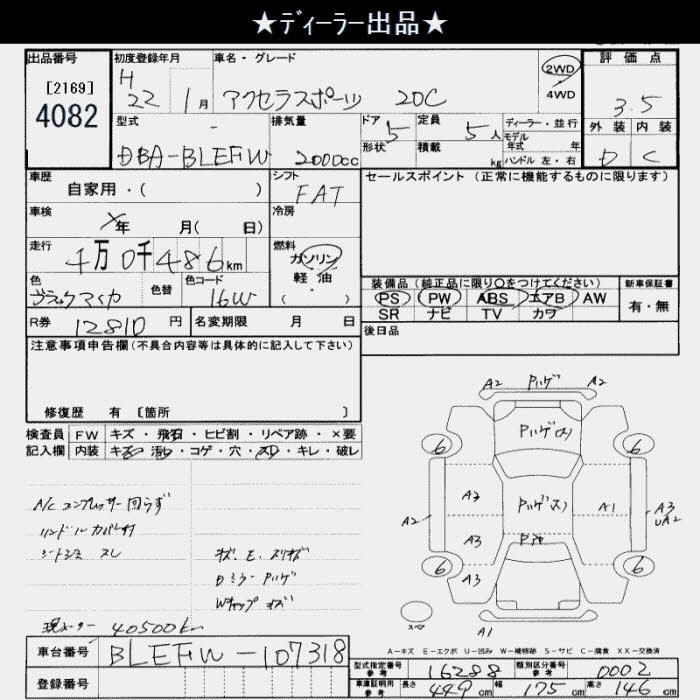 ★ディーラー出品★
出品番号 初度登録年月 車名・グレード 評価点
[2169]
4082
H 22 1月
アクセラスポーツ 20C
2WD
4WD
3.5
外装 内装
D C
型式 排気量 ドア 形状 定員 積載 ディーラー・並行
DBA-BLEFW 2000cc 5 5人 kg
モデル年式 年
ハンドル 左・右
車歴 シフト セールスポイント (正常に機能するものに限ります)
自家用・( )
FAT
車検 冷房
年 月( 日)
走行 燃料
4万0千486km
ガソリン
軽油
( ・ )
色 色替 色コード
ブラックマイカ 16W
装備品 (純正品に限り○をつけてください) 新車保証書
PS PW ABS エアB AW
SR ナビ TV カワ
有・無
R券 12810円 名変期限 月 日
後日品
注意事項申告欄(不具合内容等は具体的に記入して下さい)
修復歴 有 [箇所 ]
検査員 FW キズ・飛石・ヒビ割・リペア跡・×要
記入欄 内装 キズ・汚れ・コゲ・穴・スレ・キレ・破レ
A/C コンプレッサー回らず
シートシミ スレ
Dミラー ハゲ
Wキャップ キズ
現メーター 40500km
A2 ハゲ A2
6 6
A2 A1 A3
A2
A3
6 6
A3
スペア
A1
A-キズ E-エクボ U-凹み W-補修跡 S-サビ C-腐食 XX-交換済
車台番号 BLEFW-107318
登録番号
型式指定番号 参考 16288 類別区分番号 参考 0002
車庫証明用 参考 長さ 449cm 幅 175cm 高さ 146cm